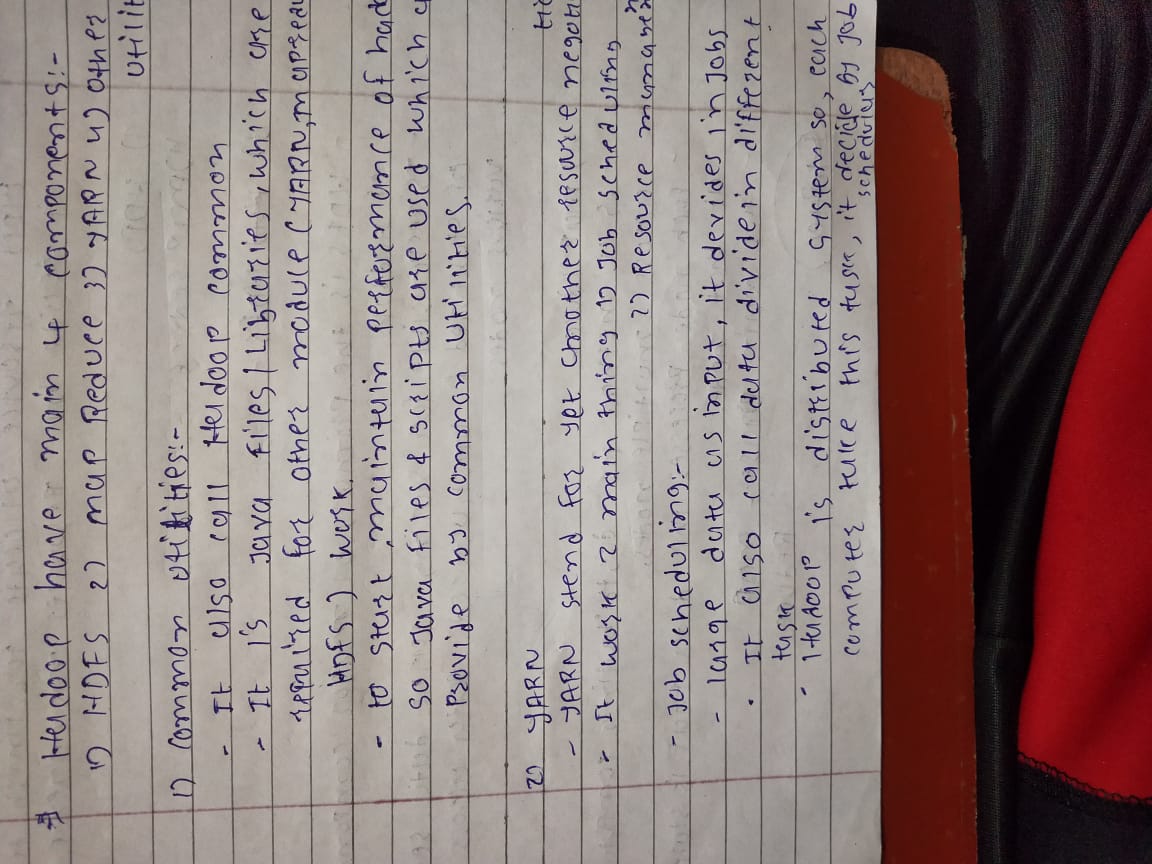 # Hadoop have main 4 components:-
1) HDFS 2) map Reduce 3) YARN 4) other
utilit
1) common utilities:-
- It also call Hadoop common
- It is Java files/Libraries, which are
required for other module (YARN,
HDFS) work.
- to start, maintain performance of had
so Java files & scripts are used which
Provide by common utilities.
2) YARN
- YARN stend for yet another resource negoti
- It work 2 main thing 1) Job scheduling
2) Resource
- Job scheduling:-
- large data as input, it devides in Jobs
- It also call data divide in different
task
- Hadoop is distributed system so, each
computer take this task, it decide by Job
scheduling